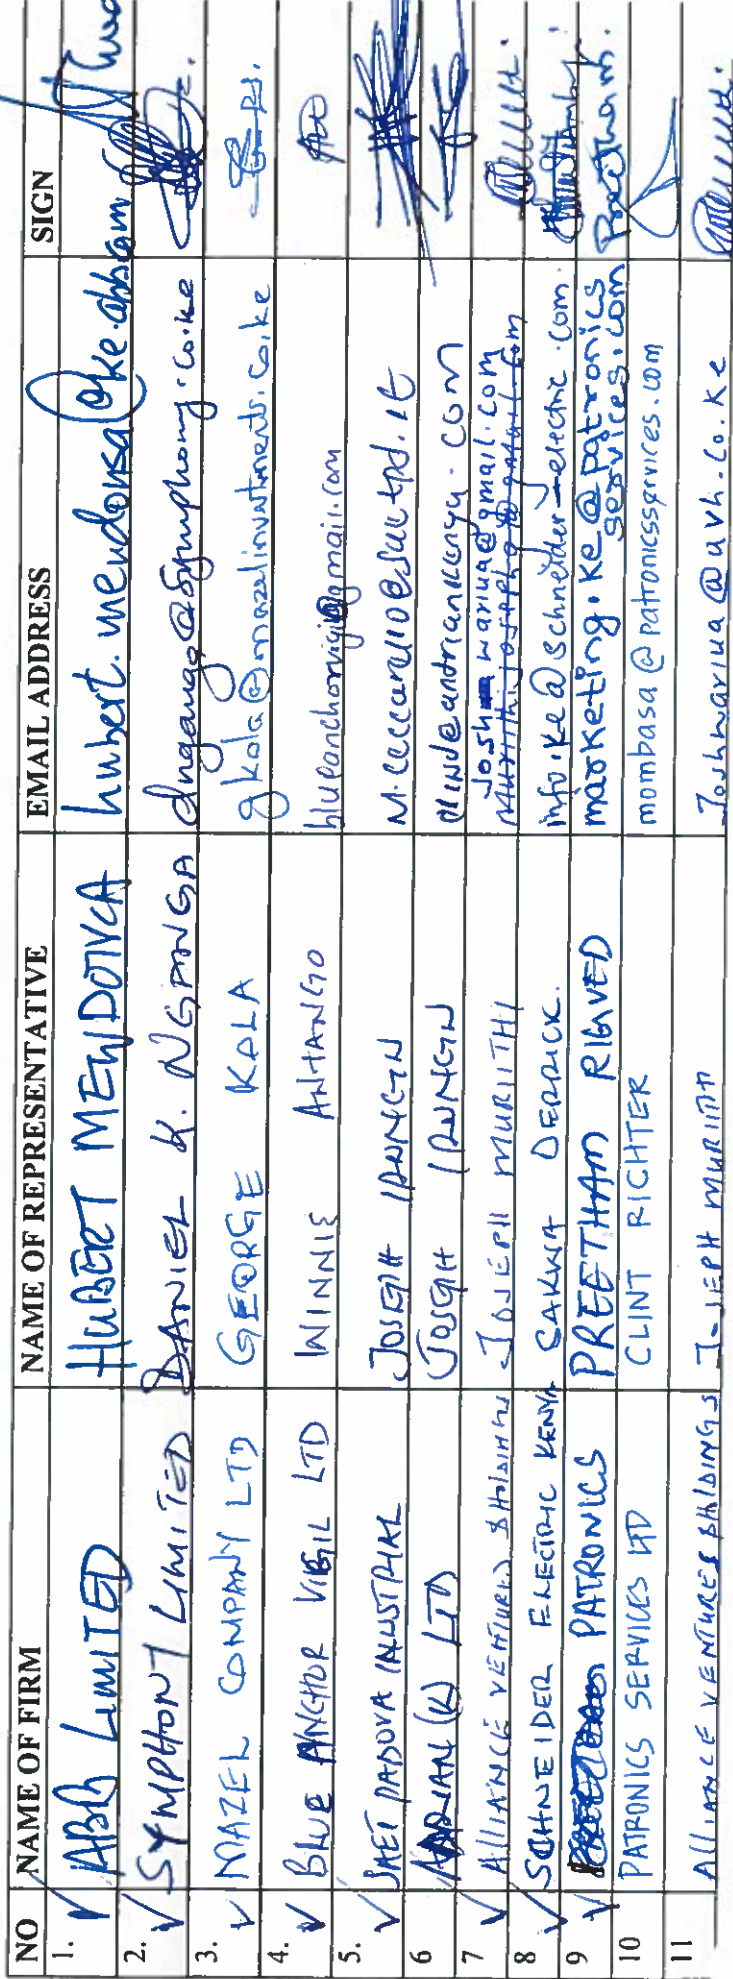 NO NAME OF FIRM NAME OF REPRESENTATIVE EMAIL ADDRESS SIGN
1. ABB LIMITED HUBERT MENDONCA hubert.mendonsa@ke.abb.com
2. SYMPHONY LIMITED DANIEL K. NGANGA dnganga@symphony.co.ke
3. MAZEL COMPANY LTD GEORGE KOLA gkola@mazelinvestments.co.ke
4. BLUE ANCHOR VIGIL LTD WINNIE blueanchorvigil@gmail.com
5. SAET PADOVA INDUSTRIAL JOSEPH
6 ADRIAN (K) LTD JOSEPH
7 ALLIANCE VENTURES & HOLDINGS JOSEPH MURIITHI Joshwariua@gmail.com
8 SCHNEIDER ELECTRIC KENYA SAKWA DERRICK. info.ke@schneider-electric.com.
9 PATRONICS PREETHAM RIGVED marketing.ke@patronics
services.com Preetham.
10 PATRONICS SERVICES LTD CLINT RICHTER mombasa@patronicsservices.com
11 ALLIANCE VENTURES & HOLDINGS JOSEPH MURIITHI Joshwariua@avh.co.ke